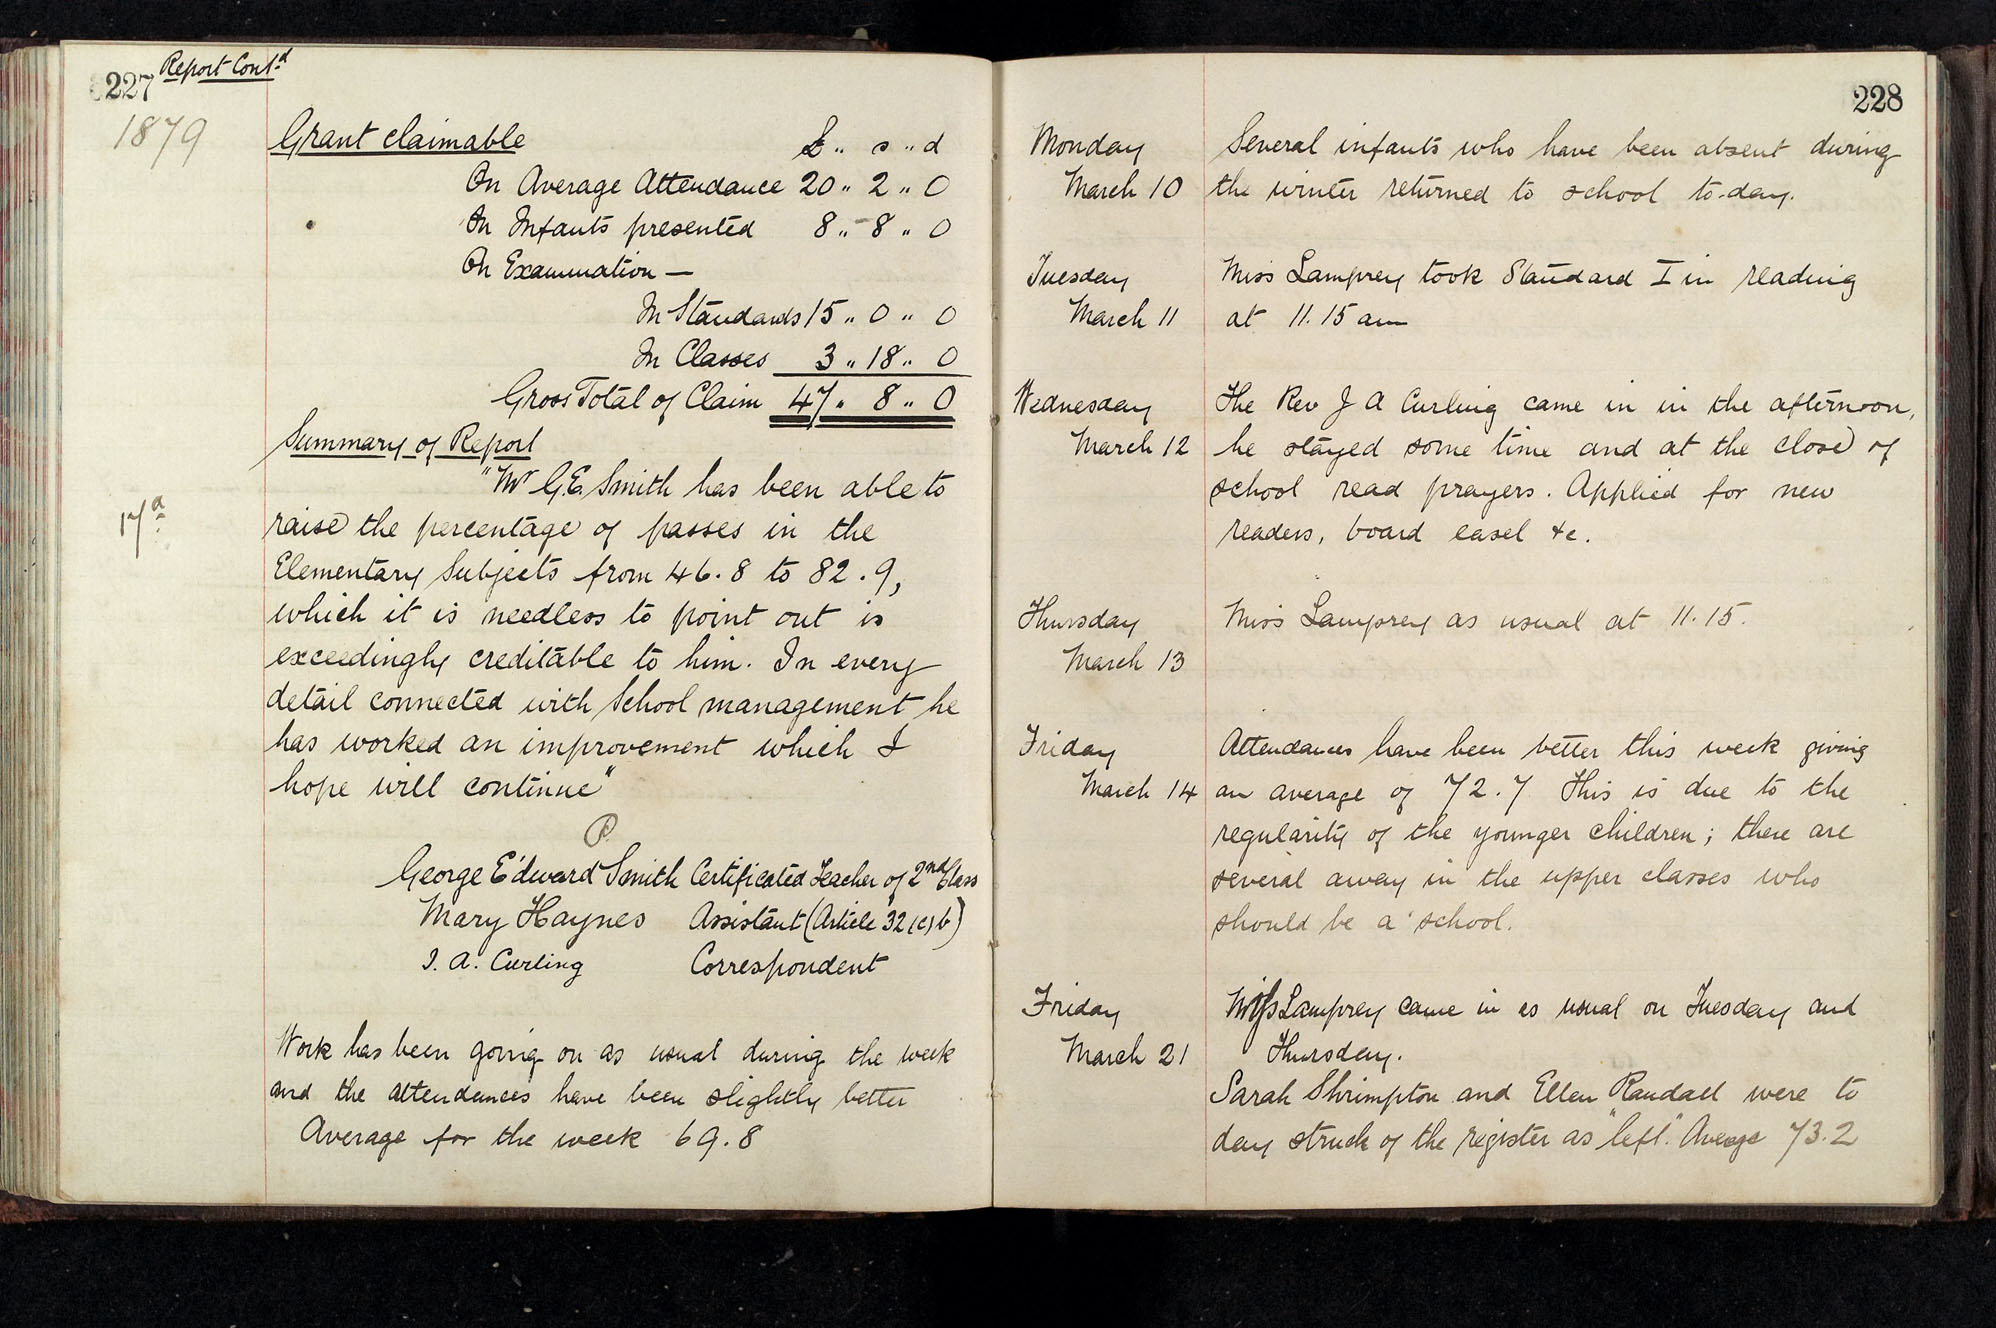 227 Report Cont.d
1879
Grant claimable £ " s " d
On Average Attendance 20 " 2 " 0
On Infants presented 8 " 8 " 0
On Examination —
In Standards 15 " 0 " 0
In Classes 3 " 18 " 0
Gross Total of Claim 47 " 8 " 0
Summary of Report
"Mr G.E. Smith has been able to
17a
raise the percentage of passes in the
Elementary Subjects from 46.8 to 82.9,
which it is needless to point out is
exceedingly creditable to him. In every
detail connected with School management he
has worked an improvement which I
hope will continue"
George Edward Smith Certificated Teacher of 2nd Class
Mary Haynes Assistant (Article 32 (c) b)
J. A. Curling Correspondent
Work has been going on as usual during the week
and the attendances have been slightly better
Average for the week 69.8
228
Monday Several infants who have been absent during
March 10 the winter returned to school to-day.
Tuesday Miss Lamprey took Standard I in reading
March 11 at 11.15 am
Wednesday The Rev J A Curling came in in the afternoon,
March 12 he stayed some time and at the close of
school read prayers. Applied for new
readers, board easel &c.
Thursday Miss Lamprey as usual at 11.15.
March 13
Friday Attendances have been better this week giving
March 14 an average of 72.7 This is due to the
regularity of the younger children; there are
several away in the upper classes who
should be a' school.
Friday Miss Lamprey came in as usual on Tuesday and
March 21 Thursday.
Sarah Shrimpton and Ellen Randall were to
day struck of the register as "left". Average 73.2